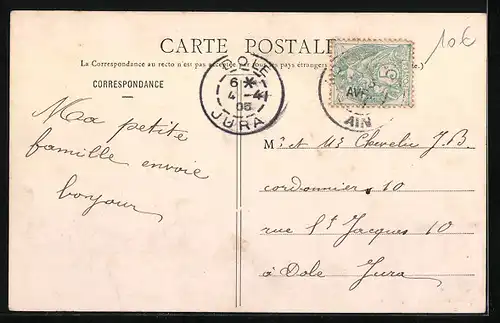 CARTE POSTALE
10€
La Correspondance au recto n'est pas acceptée par tous les pays étrangers
CORRESPONDANCE
DOLE
6 *
4 - 4
05
JURA
5
AVR
AIN
Ma petite
famille envoie
bonjour
Mr et Me Chevelu J.B.
cordonniers 10
rue St Jacques 10
à Dole Jura